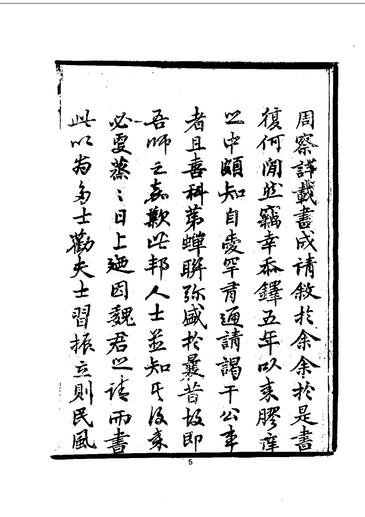 周察詳載書成請敘於余余於是書
復何間然竊幸忝鐸五年以來膠庠
之中頗知自愛罕有通請謁干公事
者且喜科第蟬聯弥盛於曩昔故即
吾師之嘉歎此邦人士並知其後來
必更蒸〻日上廼因魏君之請而書
此以為多士勸夫士習振立則民風
5